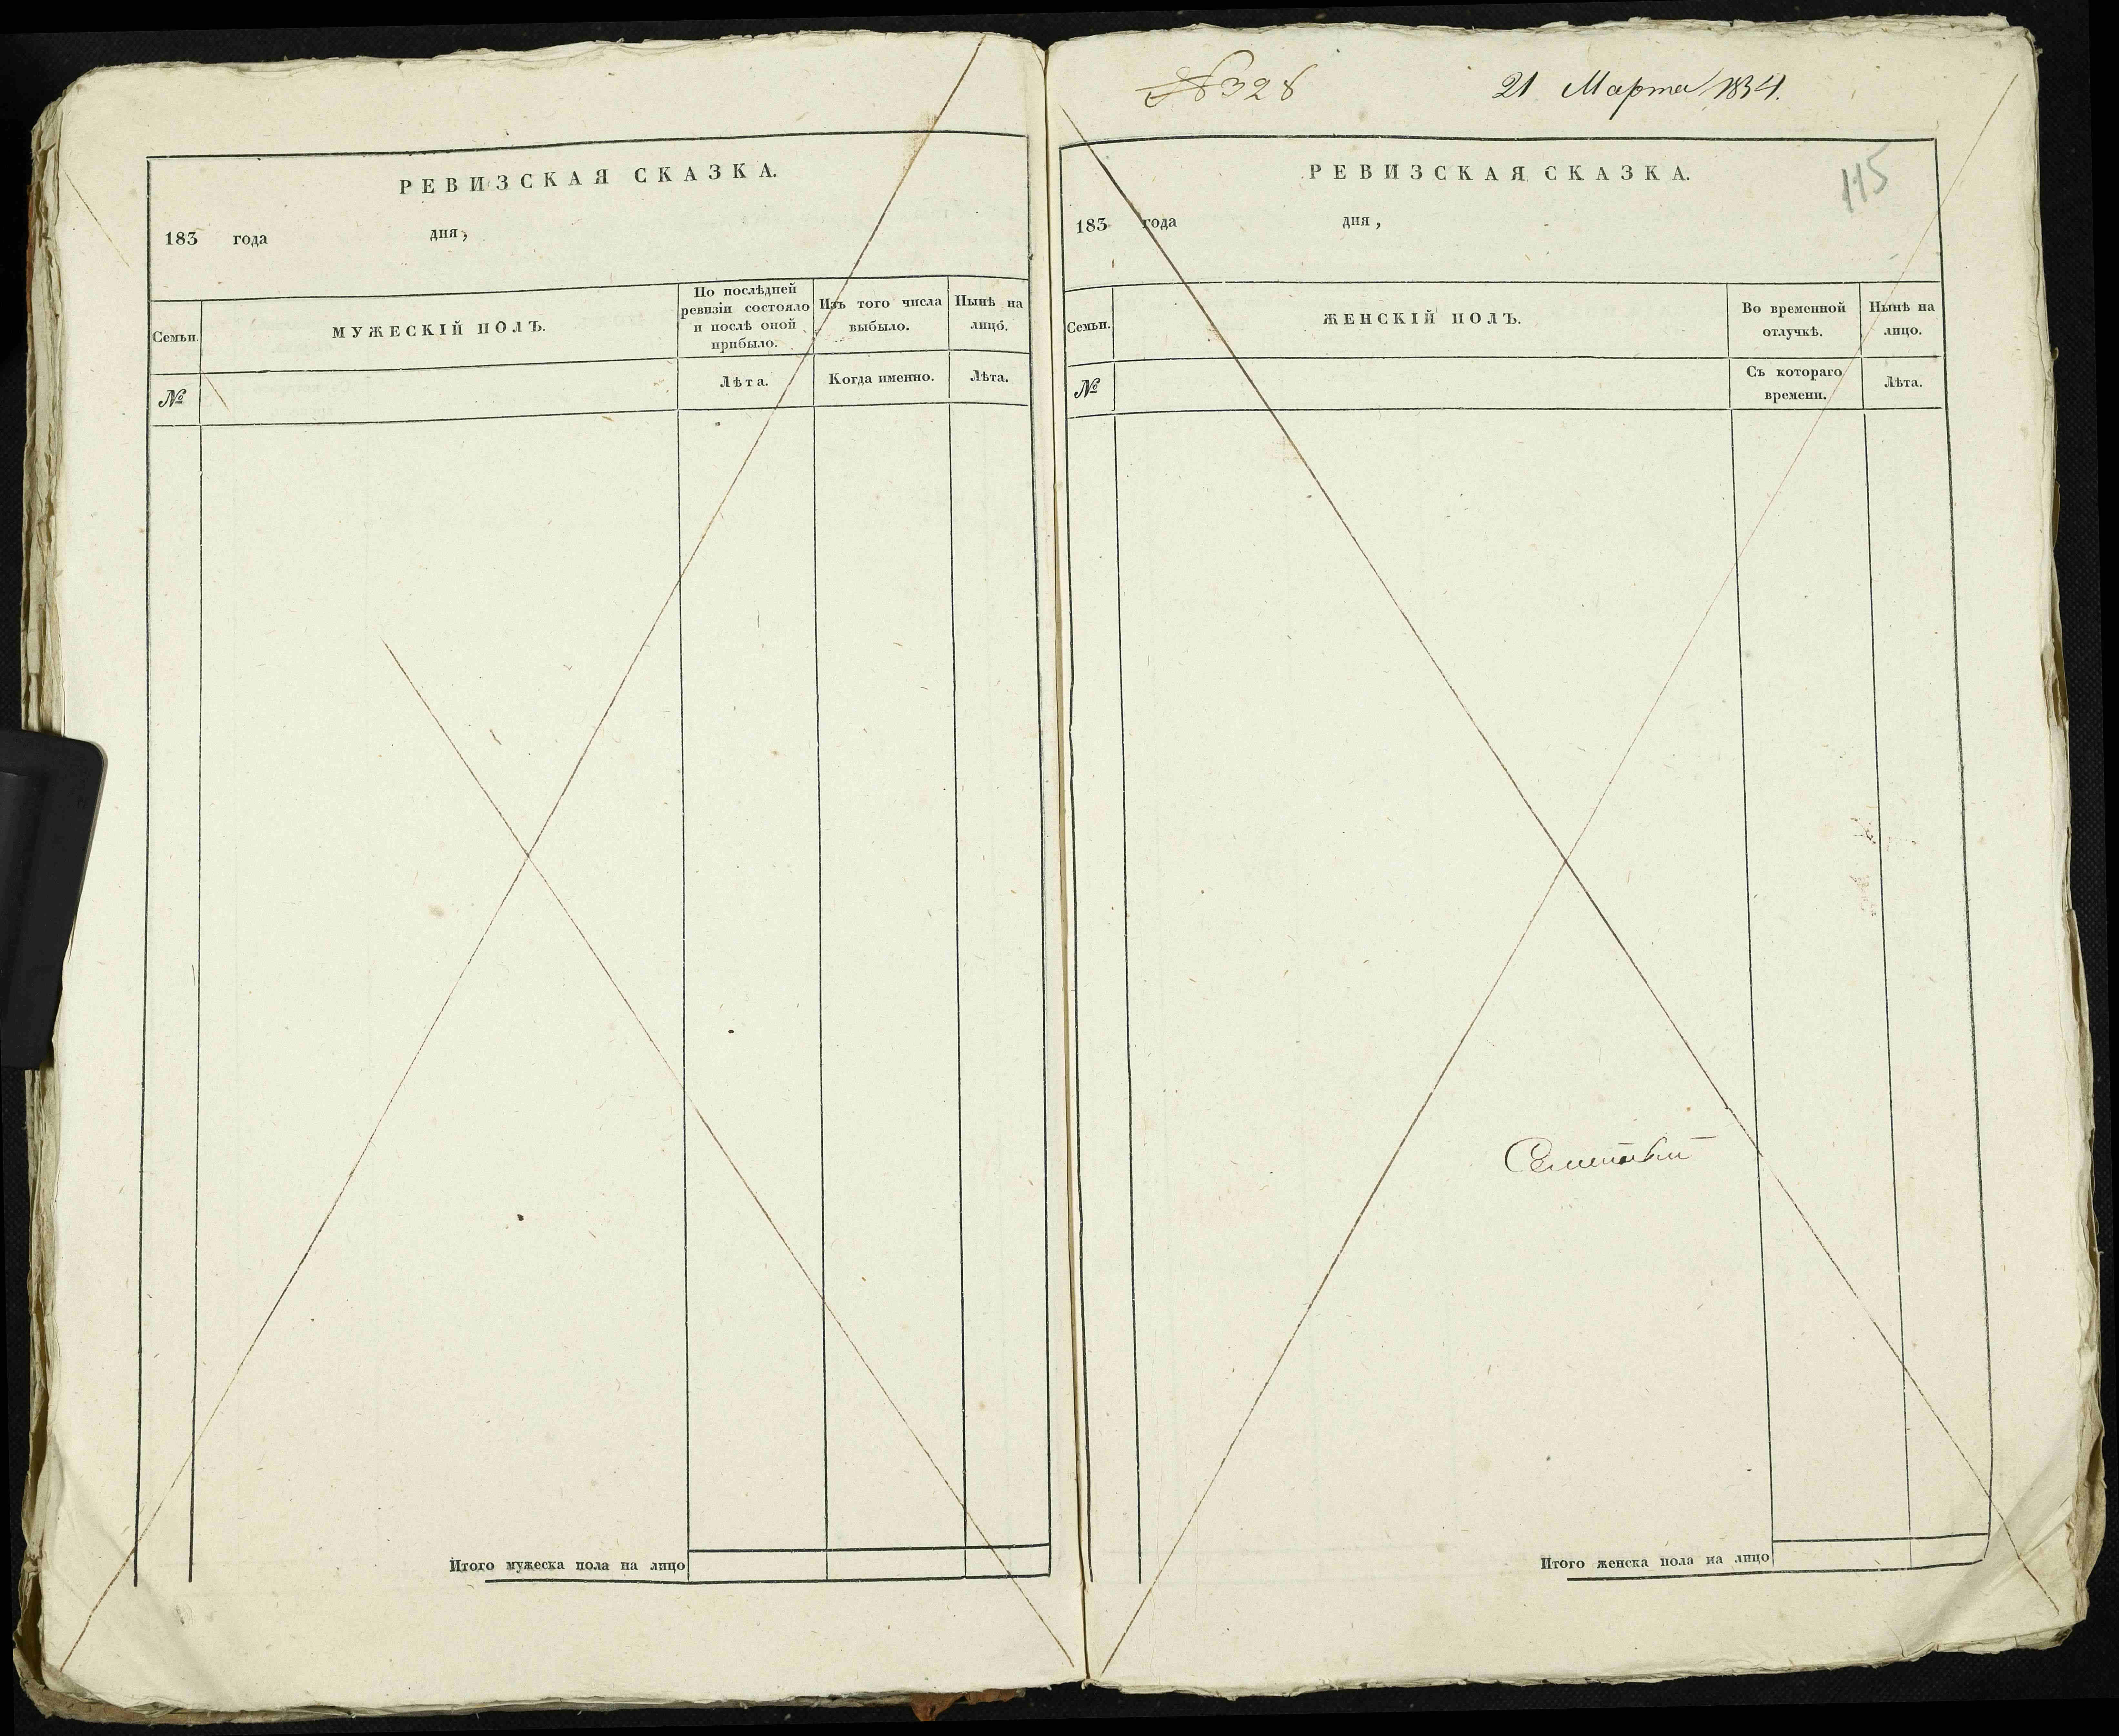 РЕВИЗСКАЯ СКАЗКА.
183 года дня,
Семьи.
МУЖЕСКІЙ ПОЛЪ.
По послѣдней
ревизіи состояло
и послѣ оной
прибыло.
Изъ того числа
выбыло.
Нынѣ на
лицо.
№
Лѣта.
Когда именно.
Лѣта.
Итого мужеска пола на лицо
№328
21 Марта 1834.
РЕВИЗСКАЯ СКАЗКА.
115
183 года дня,
Семьи.
ЖЕНСКІЙ ПОЛЪ.
Во временной
отлучкѣ.
Нынѣ на
лицо.
№
Съ котораго
времени.
Лѣта.
Итого женска пола на лицо